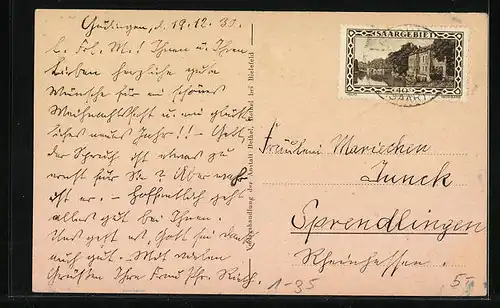 Güdingen, d. 19.12.30.
L. Frl. M.! Ihnen u. Ihren
Lieben herzliche gute
Wünsche für ein schönes
Weihnachtsfest u. ein glück-
liches neues Jahr!! – 
der Spruch ist etwas zu
ernst für Sie? Aber
ist er. – Hoffentlich geht
alles gut bei Ihnen.
Uns geht es, Gott sei Dank
auch gut. Mit vielen
Grüßen Ihre
Verlagshandlung der Anstalt Bethel, Bethel bei Bielefeld
SAARGEBIET
40
SAAR
Fräulein Mariechen
Junck
Sprendlingen
Rheinhessen
1-35
5-